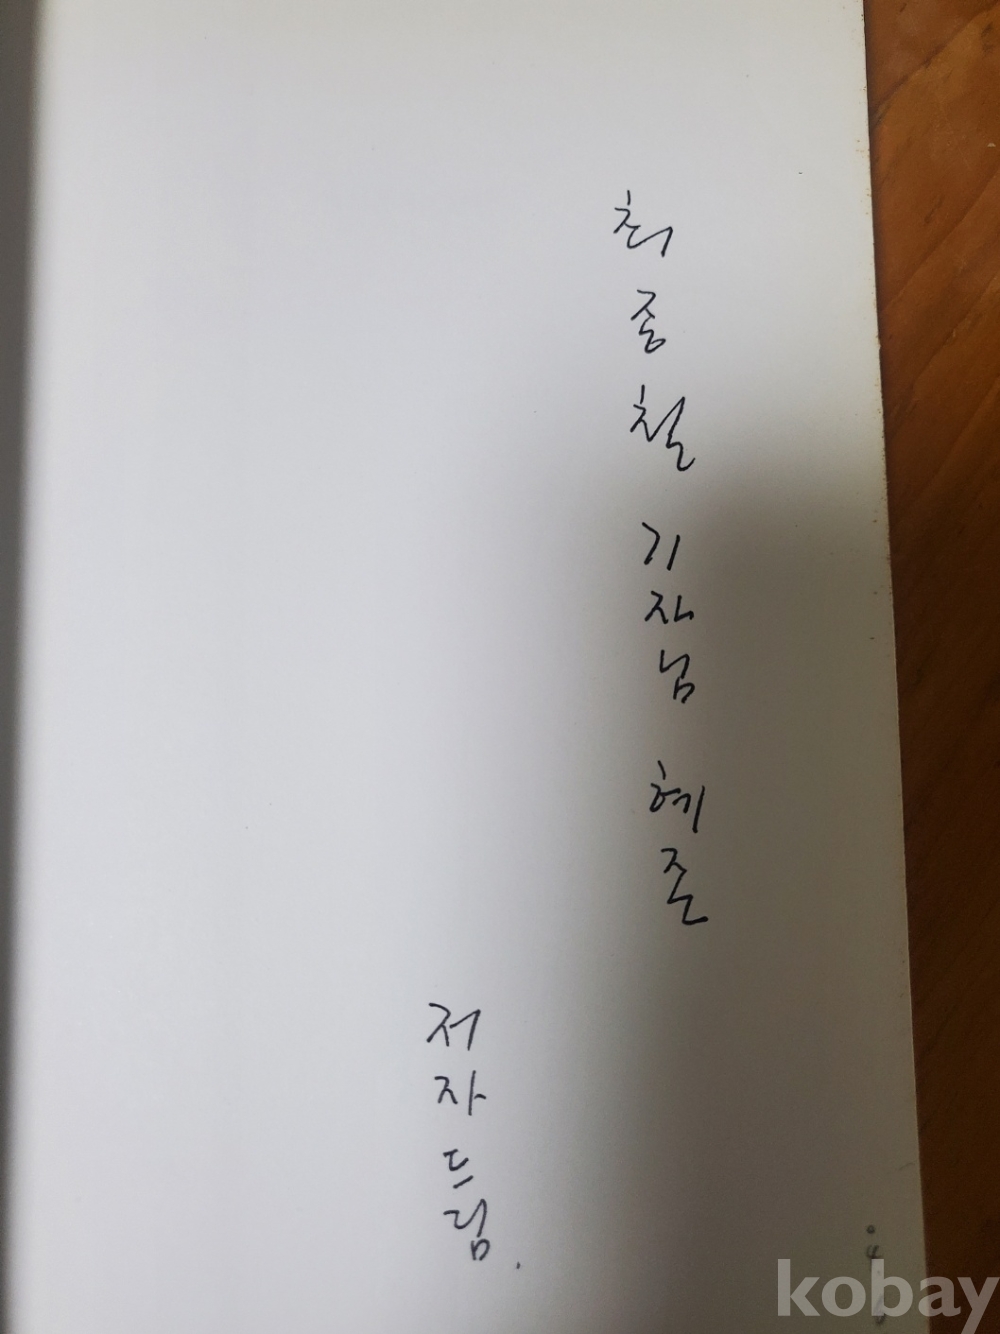 최중철 기자님 혜존
저자 드림.
kobay